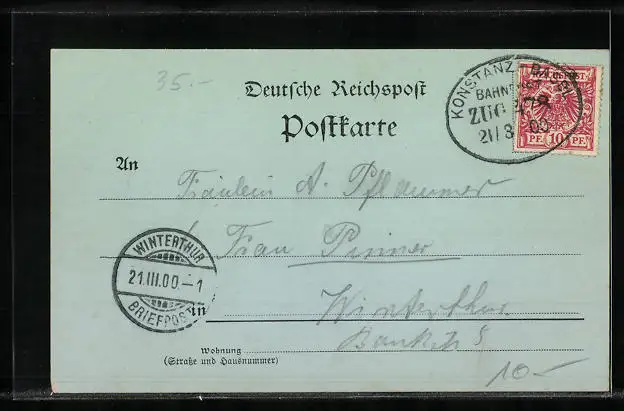 35.-
Deutsche Reichspost
Postkarte
KONSTANZ - BASEL
BAHNPOST
ZUG
21/3 00
REICHSPOST
10 PF 10 PF
An
Fräulein A. Pflammer
Frau Pinner
WINTERTHUR
21.III.00-1
BRIEFPOST
in
Winterthur
Bankstr 8
Wohnung
(Straße und Hausnummer)
10-